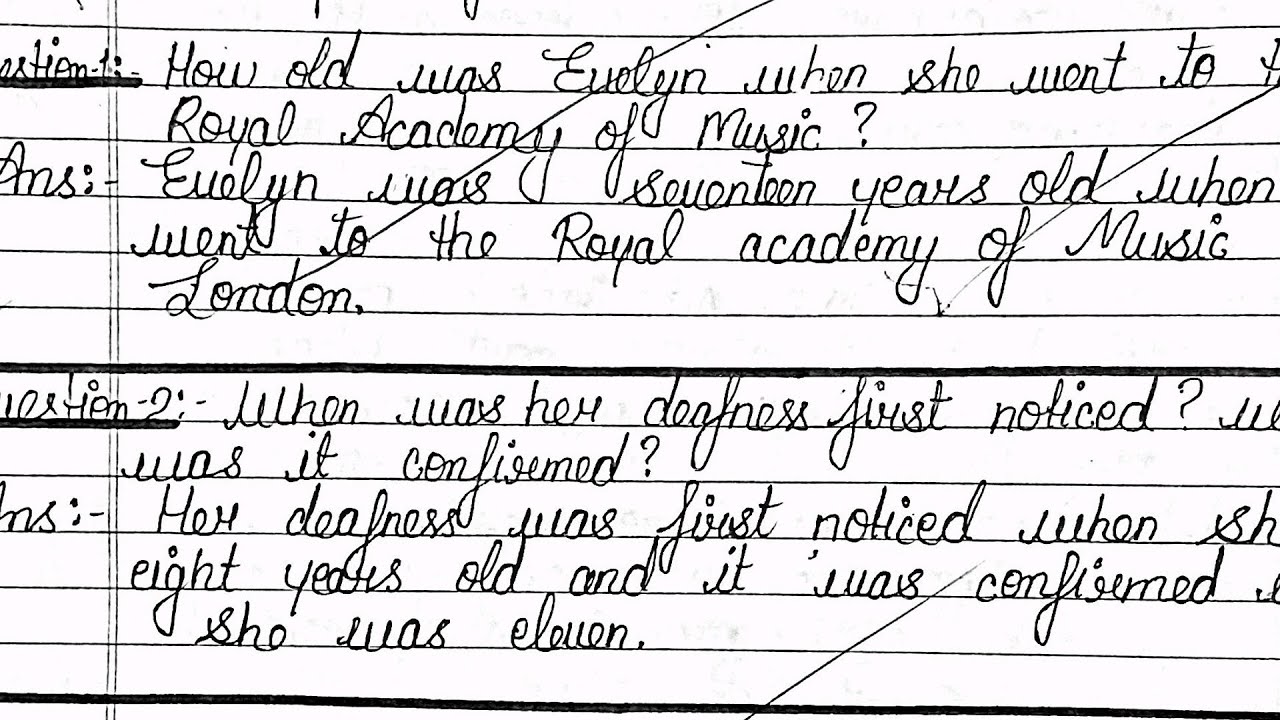 estion-1:- How old was Evelyn when she went to
Royal Academy of Music ?
Ans:- Evelyn was seventeen years old when
went to the Royal academy of Music
London.
uestion-2:- When was her deafness first noticed ?
was it confirmed ?
ns:- Her deafness was first noticed when sh
eight years old and it was confirmed
she was eleven.